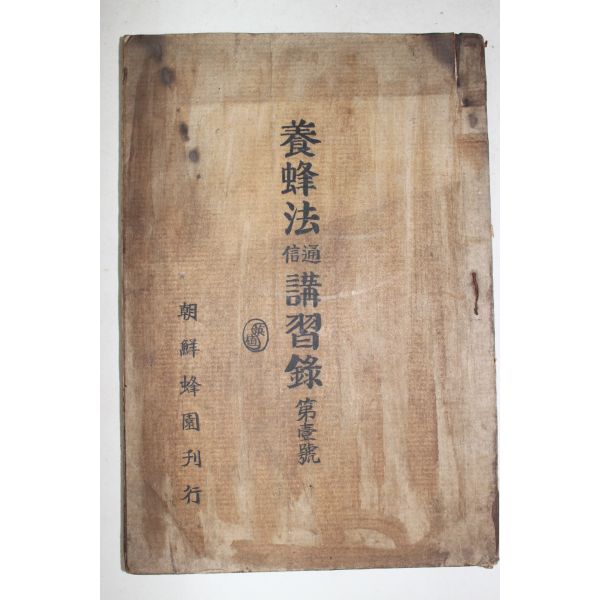 養蜂法通信講習錄第壹號
朝鮮蜂園刊行